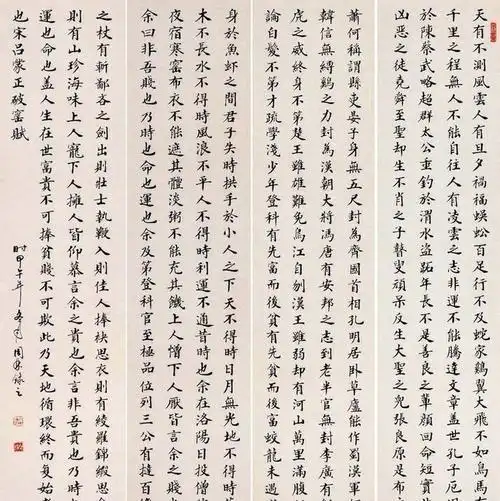 天有不測風雲人有旦夕禍福蜈蚣百足行不及蛇家鷄翼大飛不如鳥馬
千里之程無人不能自往人有凌雲之志非運不能騰達文章蓋世孔子厄
於陳蔡武略超群太公垂釣於渭水盜跖年長不是善良之輩顔回命短實
凶惡之徒堯舜至聖却生不肖之子瞽叟頑呆反生大聖之兒張良原是布
蕭何稱謂縣吏晏子身無五尺封為齊國首相孔明居卧草廬能作蜀漢軍
韓信無縛鷄之力封為漢朝大將馮唐有安邦之志到老半官無封李廣有
虎之威終身不第楚王雖雄難免烏江自刎漢王雖弱却有河山萬里滿腹
論白髮不第才疏學淺少年登科有先富而後貧有先貧而後富蛟龍未遇
身於魚蝦之間君子失時拱手於小人之下天不得時日月無光地不得時
木不長水不得時風浪不平人不得時利運不通昔時也余在洛陽日投僧
夜宿寒窑布衣不能遮其體淡粥不能充其饑上人憎下人厭皆言余之賤
余曰非吾賤也乃時也命也運也余及第登科官至極品位列三公有撻百
之杖有斬鄙吝之劍出則壯士執鞭入則佳人捧袂思衣則有綾羅錦緞思
則有山珍海味上人寵下人擁人皆仰慕言余之貴也余言非吾貴也乃時
運也命也蓋人生在世富貴不可捧貧賤不可欺此乃天地循環終而復始者
也宋呂蒙正破窑賦
時甲午年冬月周録之